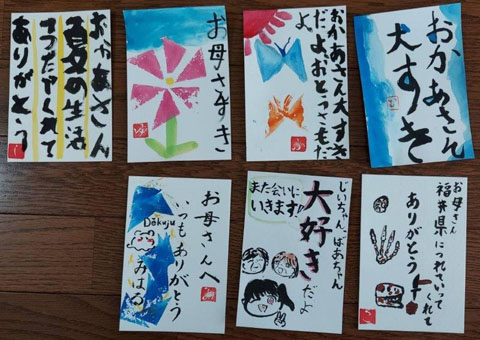 おかあさん
夏の生活
くれて
ありがとう
お母さんすき
おかあさん大すき
だよ。おとうさもだ
よ
おかあさん
大すき
お母さんへ
いつもありがとう
Dokuju
みはる
じいちゃん、ばあちゃん
大好きだよ
また会いに
いきます!
お母さん
福井県につれていってくれて
ありがとう